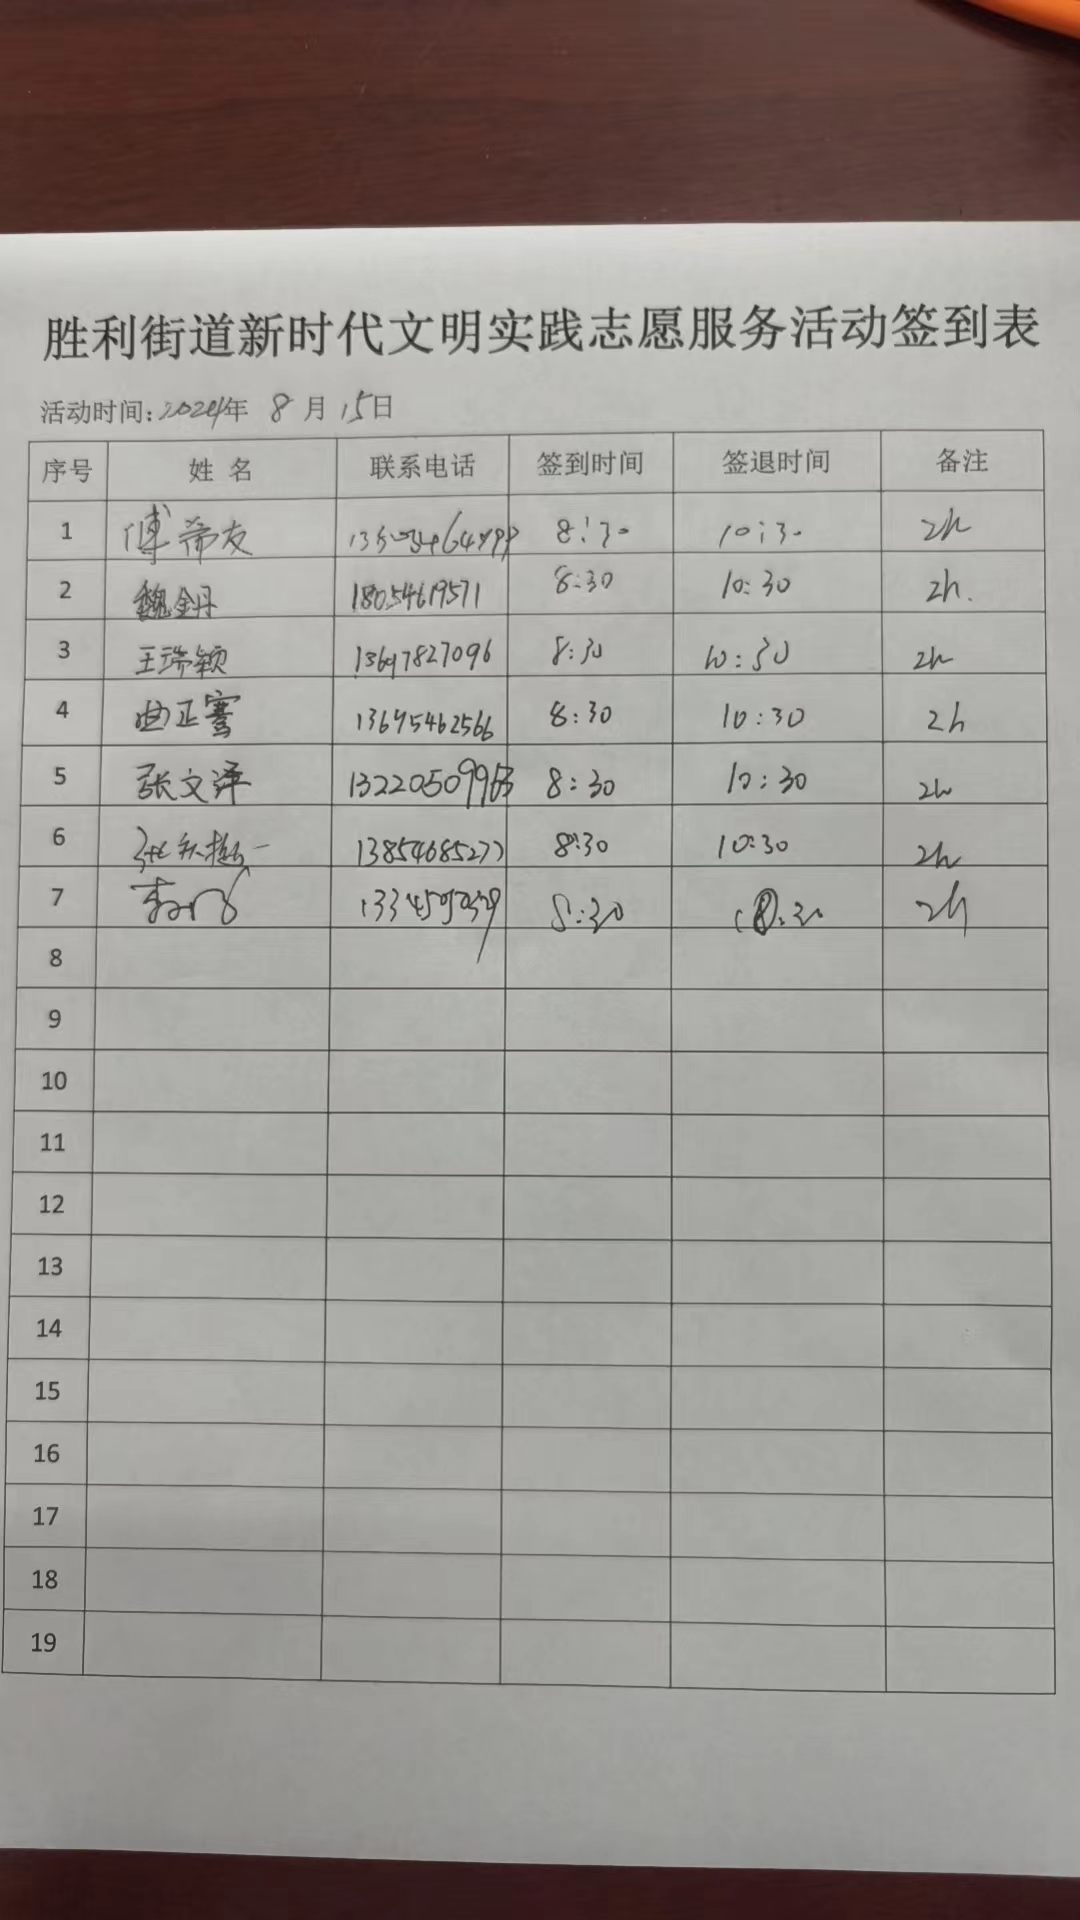 胜利街道新时代文明实践志愿服务活动签到表
活动时间:2024年 8月15日
序号 姓名 联系电话 签到时间 签退时间 备注
1 傅希友 8:30 10:30 2h
2 魏钥丹 18054619571 8:30 10:30 2h.
3 王瑞颖 13697827096 8:30 10:30 2h
4 曲正骞 13695462566 8:30 10:30 2h
5 张文泽 13220509963 8:30 10:30 2h
6 13854685277 8:30 10:30 2h
7 8:30 10:30 2h
8
9
10
11
12
13
14
15
16
17
18
19